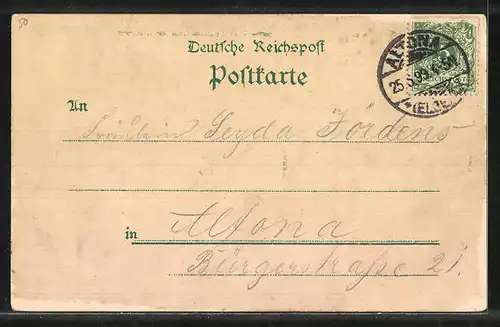 50
Deutsche Reichspost
Postkarte
ALTONA
25 5 99
(ELBE)
An
Fräulein Leyda Jördens
in
Altona
Bürgerstraße 21.